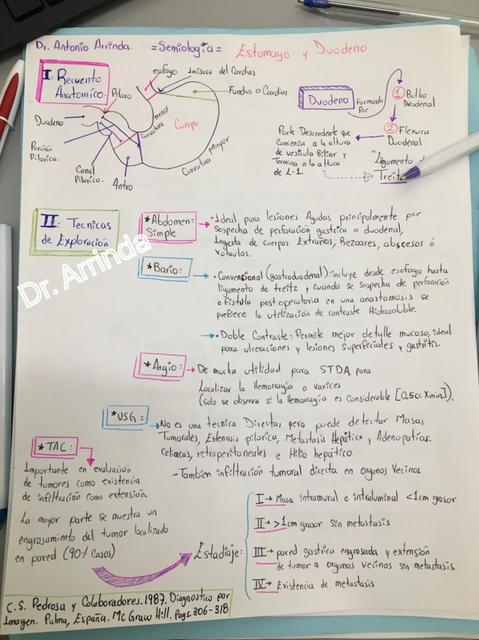 Dr. Antonio Arrinda. =Semiología= Estomago y Duodeno
I. Recuento
Anatomico.
esofago
incisura del Cardias
Fundus o Cardias
Piloro
Duodeno
menor
Curvatura
Cuerpo
Curvatura Mayor
Porción
Pilorica.
Canal
Pilorico.
Antro
Duodeno
Formado
Por
① Bulbo
Duodenal
② Flexura
Duodenal
Parte Descendente que
Comienza a la altura
de vesicula Biliar y
Termina a la altura
de L-1.
"Ligamento
Treitz
II. Tecnicas
de Exploración
*Abdomen:
Simple
• Ideal para lesiones Agudas principalmente por
sospecha de perforación gastrica o duodenal,
Ingesta de Cuerpos Extraños, Bezoares, abscesos ó
vólvulos.
Dr. Arrinda
*Bario:
• Convencional (gastroduodenal): incluye desde esofago hasta
ligamento de treitz y cuando se sospecha de perforación
o fistola postoperatoria en una anastomosis se
prefiere la utilización de contraste Hidrosoluble.
• Doble Contraste: Permite mejor detalle mucoso, ideal
para ulceraciones y lesiones superficiales y gastritis.
*Angio:
De mucha utilidad para STDA para
Localizar la Hemoragia o varices
(solo se observa si la Hemoragia es considerable [0.5cc Xmin]).
*USG:
No es una tecnica Directa, pero puede detectar Masas
Tumorales, Estenosis pilorica, Metastasis Hepática y Adenopatías.
Celiacas, retroperitoneales e Hilio hepático.
- Tambien infiltración tumoral directa en organos vecinos
*TAC:
Importante en evaluación
de tumores como existencia
de infiltración como extensión.
La mayor parte se muestra un
engrosamiento del tumor localizado
en pared (90% Casos)
Estadiaje:
I → Masa intramural e intraluminal <1cm grosor
II → >1cm grosor sin metastasis
III → pared gastrica engrosada y extensión
de tumor a organos vecinos sin metastasis
IV → Existencia de metastasis
C.S. Pedrosa y Colaboradores. 1987. Diagnostico por
Imagen. Palma, España. Mc Graw Hill. Pags. 306-318